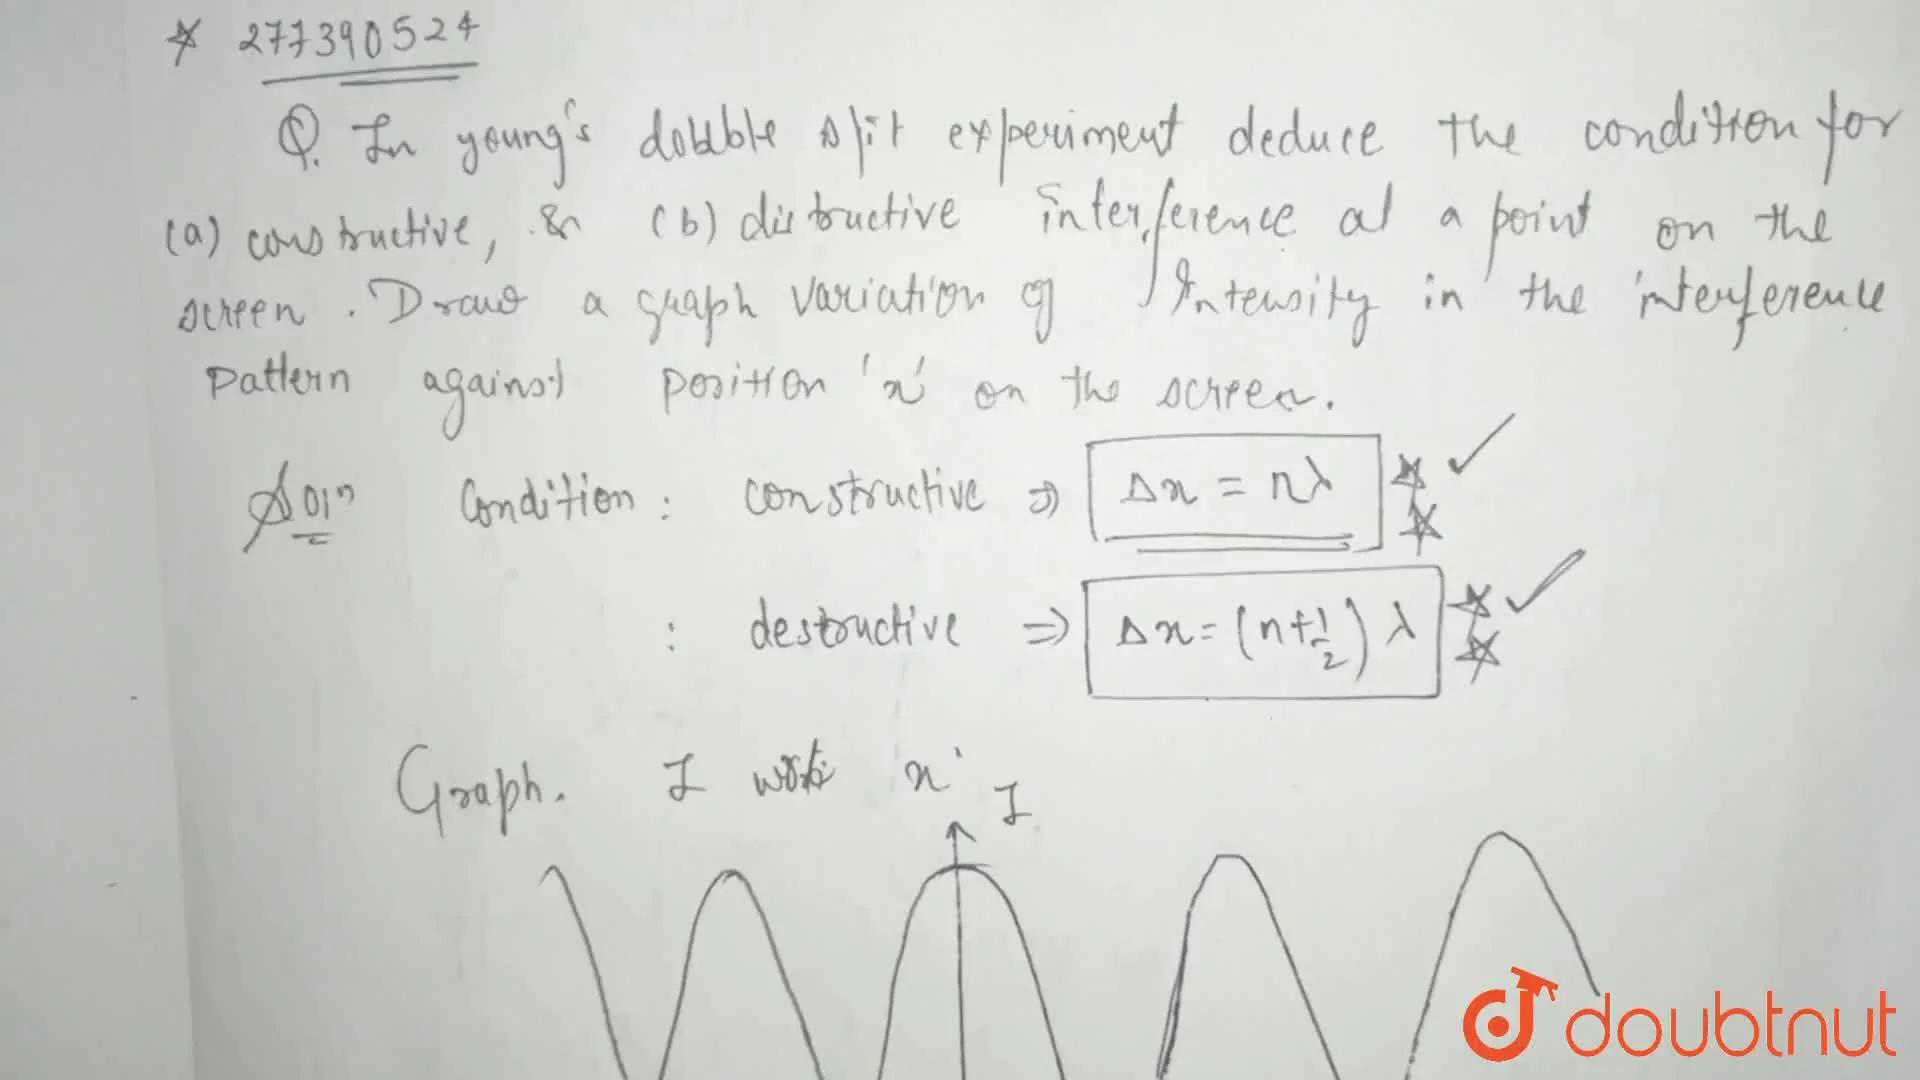 ☆ 277390524
Q. In young's double slit experiment deduce the condition for
(a) constructive, & (b) distructive interference at a point on the
screen. Draw a graph variation of Intensity in the interference
pattern against position 'x' on the screen.
Soln Condition: constructive ⇒ Δx = nλ
: destructive ⇒ Δx = (n+1/2) λ
Graph. I x
I
doubtnut